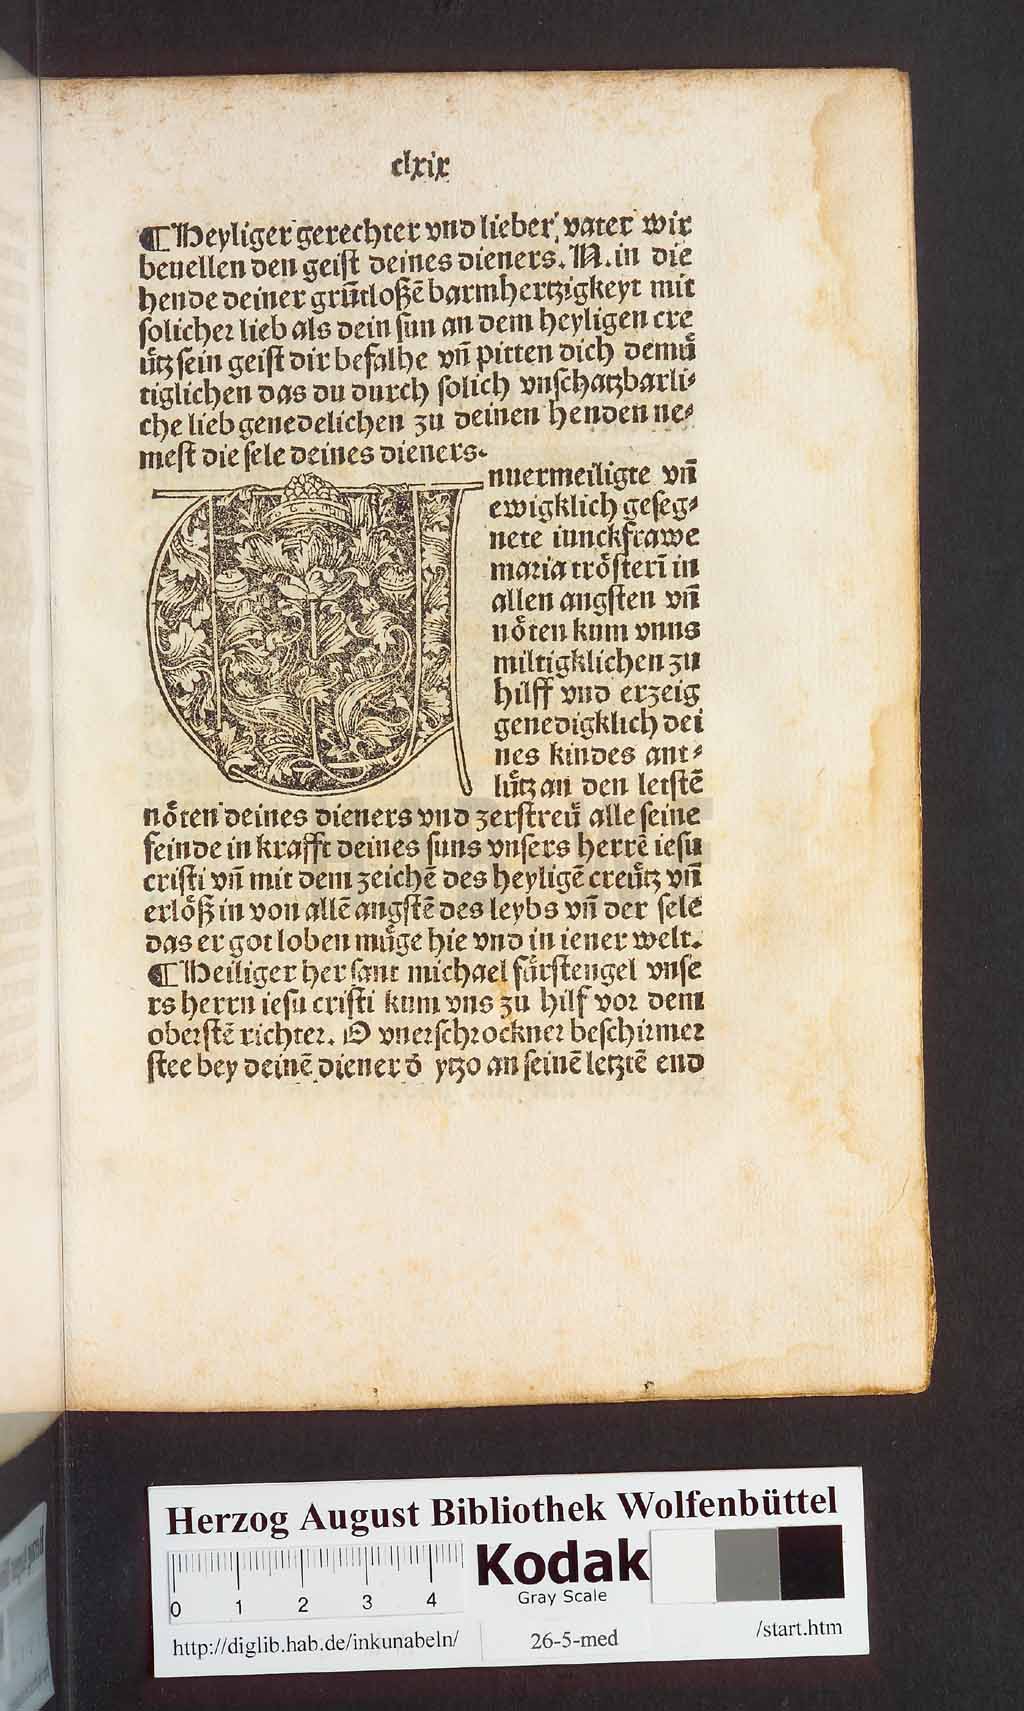 clxix
¶ Heyliger gerechter vnd lieber vater wir
beuellen den geist deines dieners. N. in die
hende deiner grūtloßē barmhertzigkeyt mit
solicher lieb als dein sun an dem heyligen cre
uͤtz sein geist dir befalhe vn̄ pitten dich demuͤ
tiglichen das du durch solich vnschatzbarli⸗
che lieb genedelichen zu deinen henden ne⸗
mest die sele deines dieners.
Unuermeiligte vn̄
ewigklich geseg⸗
nete iunckfrawe
maria troͤsterī in
allen angsten vn̄
noͤten kum vnns
miltigklichen zu
hilff vnd erzeig
genedigklich dei
nes kindes ant⸗
luͤtz an den letstē
noͤten deines dieners vnd zerstreuͤ alle seine
feinde in krafft deines suns vnsers herrē iesu
cristi vn̄ mit dem zeichē des heyligē creuͤtz vn̄
erloͤß in von allē angstē des leybs vn̄ der sele
das er got loben muͤge hie vnd in iener welt.
¶ Heiliger her sant michael fuͤrstengel vnse
rs herrn iesu cristi kum vns zu hilf vor dem
oberstē richter. O vnerschrockner beschirmer
stee bey deinē diener d̄ ytzo an seinē letztē end
Herzog August Bibliothek Wolfenbüttel
Kodak
Gray Scale
0 1 2 3 4
http://diglib.hab.de/inkunabeln/
26-5-med
/start.htm